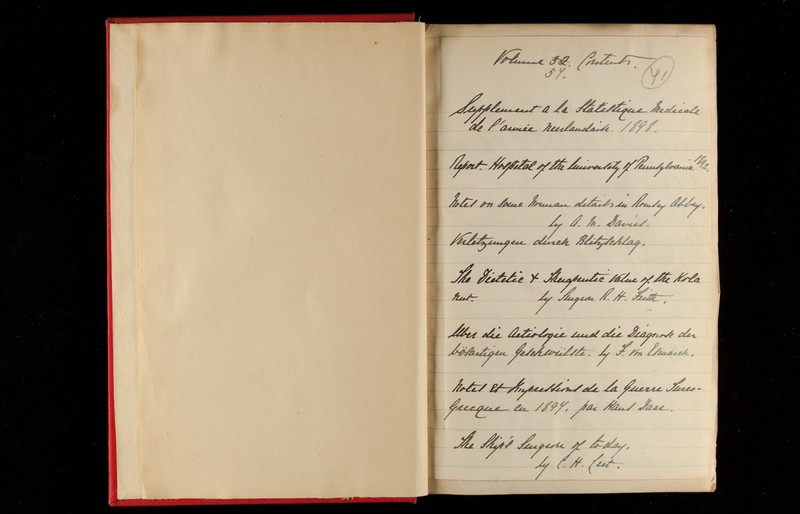 Volume 32. Contents.
57.
91
Supplement a la Statistique Medicale
de l'armée Neerlandaise. 1898.
Report. Hospital of the University of Pennsylvania 1892.
Notes on some Norman details in Romsey Abbey.
by A. M. Davies.
Verletzungen durch Blitzschlag.
The Dietetic & Therapeutic Value of the Kola
nut by Surgeon R. H. Firth.
Uber die Aetiologie und die Diagnose der
bösartigen Geschwülste. by F. von Esmarch.
Notes et Impressions de la Guerre Turco-
Grecque en 1897. par Hans Daae.
The Ship's Surgeon of to-day.
by C. H. Leet.